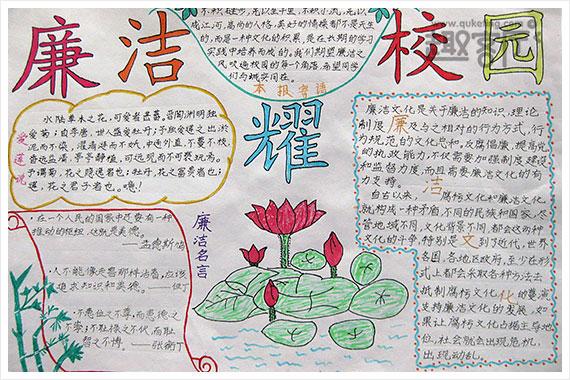 廉洁
耀
校园
成江河,高尚的人格,美好的情操都不是天生
的,而是一种文化的积累,是在长期的学习
实践中培养而成的。我们期望廉洁之
风吹遍校园的每一个角落,希望同学
们与诚实同在。
本报寄语
爱莲说
水陆草木之花,可爱者甚蕃。晋陶渊明独
爱菊;自李唐,世人盛爱牡丹;予独爱莲之出淤
泥而不染,濯清涟而不妖,中通外直,不蔓不枝,
香远益清,亭亭静植,可远观而不可亵玩焉。
予谓菊,花之隐逸者也;牡丹,花之富贵者也;
莲,花之君子者也。噫!
廉洁名言
·在一个人民的国家中还要有一种
推动的枢纽,这就是美德。
——孟德斯鸠
·人不能像走兽那样活着,应该
追求知识和美德。——但丁
·不患位之不尊,而患德之
不崇;不耻禄之不伙,而耻
智之不博。——张衡
廉洁文化是关于廉洁的知识、理论
制度廉及与之相对的行为方式,行
为规范的文化总和。反腐倡廉,提高党
的执政能力,不仅需要加强制度建设
和监督力度,而且需要廉洁文化的有
力支持。洁
自古以来,腐朽文化和廉洁文化
就构成一种矛盾,不同的民族和国家,尽
管地域不同,文化背景不同,都会这两种
文化的斗争,特别是文到了近代,世界
各国、各地区政府,至少在形
式上都会采取各种办法去
抵制腐朽文化化的蔓流,
支持廉洁文化的发展,如
果让腐朽文化占据主导地
位,社会就会出现危机,
出现动乱。
www.qukeping.com